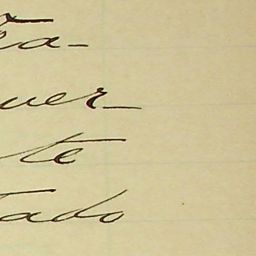 ra-
uer-
te
tado